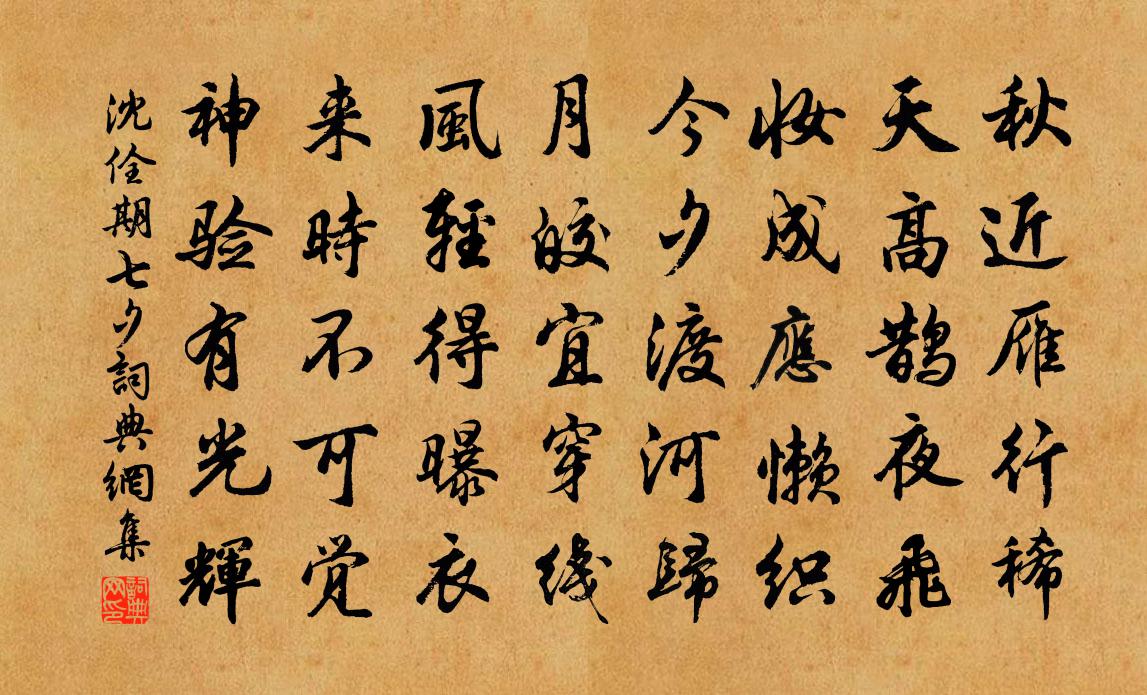 秋近雁行稀
天高鹊夜飛
妝成應懒织
今夕渡河歸
月皎宜穿线
風輕得曝衣
来時不可覚
神验有光輝
沈佺期七夕詞典網集
詞典网印